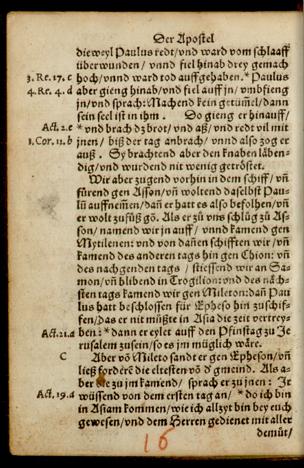 Der Apostel
die weyl Paulus redt/ vnd ward vom schlaaff
überwunden/ vnnd fiel hinab drey gemach
3. Re. 17. c hoch/ vnnd ward tod auffgehaben. * Paulus
4. Re. 4. d aber gieng hinab/ vnd fiel auff jn/ vmbfieng
jn/ vnd sprach: Machend kein getüm̃el/ dann
sein seel ist in ihm. Do gieng er hinauff/
Act. 2. e * vnd brach dz brot/ vnd aß/ vnd redt vil mit
1. Cor. 11. b jnen/ biß der tag anbrach/ vnnd also zog er
auß. Sy brachtend aber den knaben läben-
dig/ vnd wurdend nit wenig getröstet.
Wir aber zugend vorhin in dem schiff/ vñ
fürend gen Asson/ vñ woltend daselbst Pau-
lũ auffnem̃en/ dañ er hatt es also befolhen/ vñ
er wolt zu fůß gõ. Als er zů vns schlůg zů As-
son/ namend wir jn auff/ vnnd kamend gen
Mytilenen: vnd von dañen schifften wir/ vñ
kamend des anderen tags hin gen Chion: vñ
des nachgenden tags/ stiessend wir an Sa-
mon/ vñ blibend in Trogilion: vnd des näch-
sten tags kamend wir gen Mileton: dañ Pau
lus hatt beschlossen für Epheso hin zu schif-
fen/ das er nit müßte in Asia die zeit vertrey-
Act. 21. a ben: * dann er eylet auff den Pfinstag zu Je
rusalem zu sein/ so es jm müglich wäre.
C Aber võ Mileto sandt er gen Epheson/ vñ
ließ forderẽ die eltesten võ d' gmeind. Als a-
ber sie zu jm kamend/ sprach er zu jnen: Ir
Act. 19. a wüssend von dem ersten tag an/ * do ich bin
in Asiam kommen/ wie ich allzyt bin bey euch
gewesen/ vnd dem Herren gedienet mit aller
demüt/
16